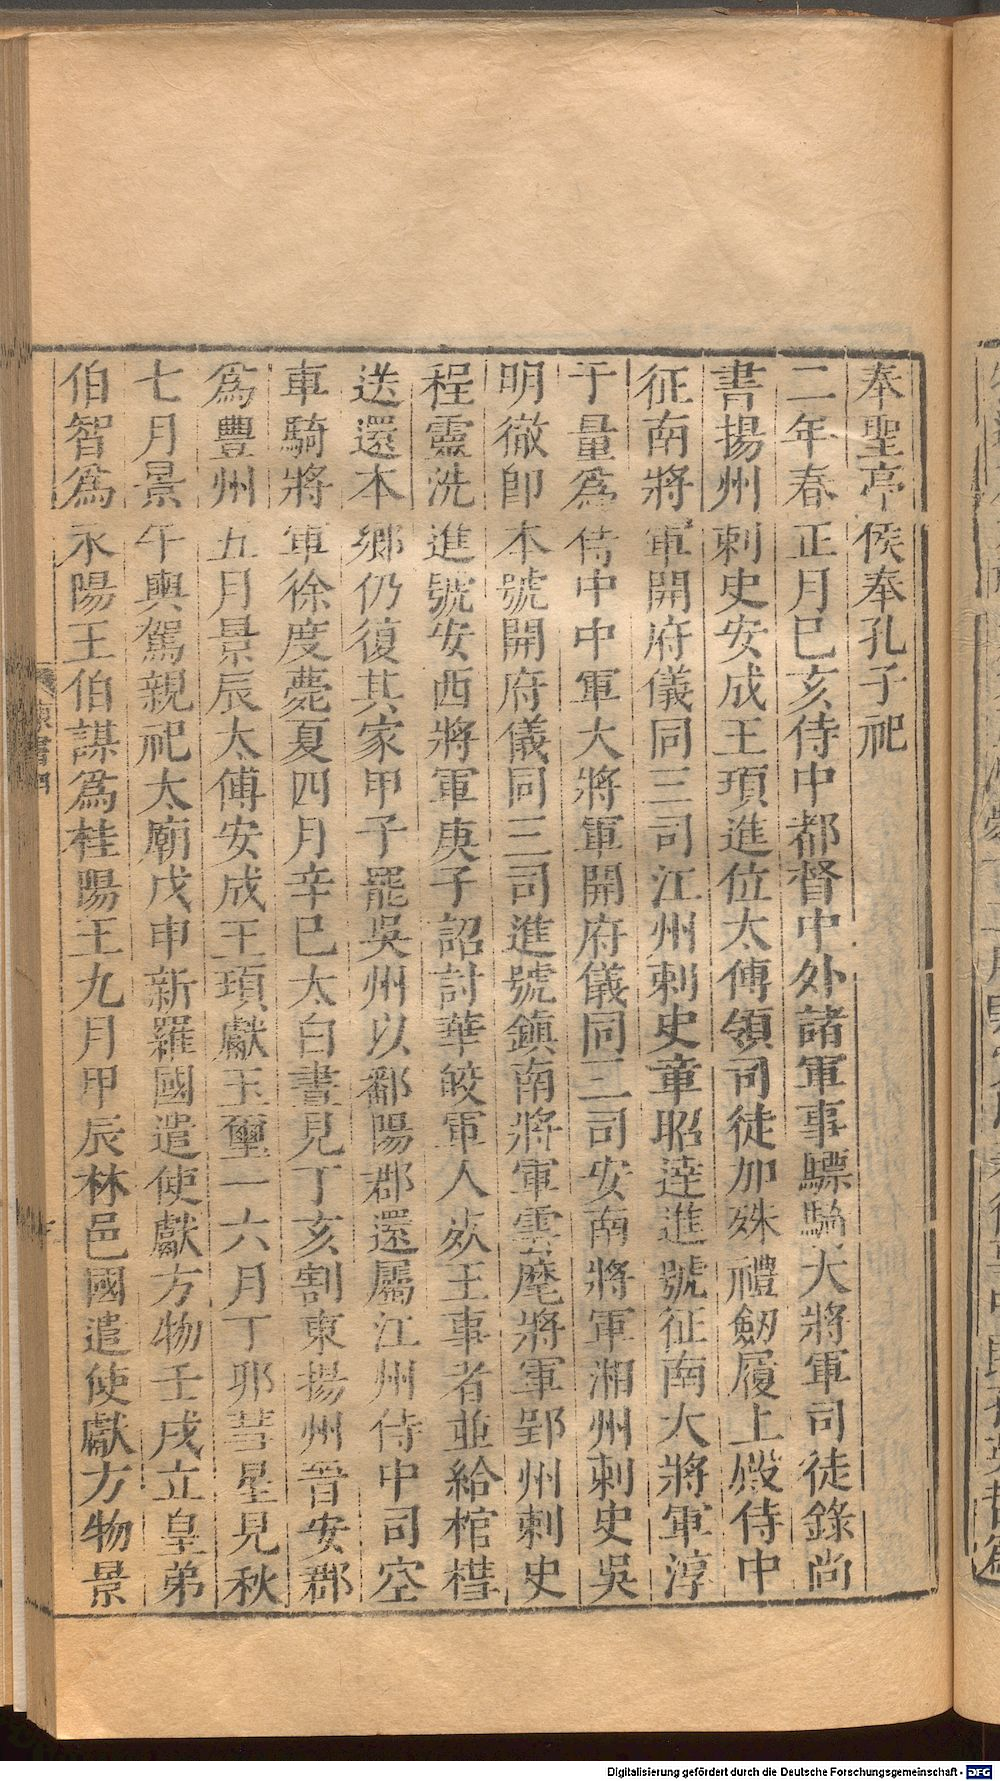 奉聖亭侯奉孔子祀
二年春正月巳亥侍中都督中外諸軍事驃騎大將軍司徒錄尚
書揚州刺史安成王頊進位太傅領司徒加殊禮劒履上殿侍中
征南將軍開府儀同三司江州刺史章昭達進號征南大將軍淳
于量爲侍中中軍大將軍開府儀同三司安南將軍湘州刺史吳
明徹卽本號開府儀同三司進號鎮南將軍雲麾將軍郢州刺史
程靈洗進號安西將軍庚子詔討華皎軍人死王事者並給棺槥
送還本鄉仍復其家甲子罷吳州以鄱陽郡還屬江州侍中司空
車騎將軍徐度薨夏四月辛巳太白晝見丁亥割東揚州晉安郡
爲豐州五月景辰太傅安成王頊獻玉璽一六月丁邪彗星見秋
七月景午輿駕親祀太廟戊申新羅國遣使獻方物壬戌立皇弟
伯智爲永陽王伯謀爲桂陽王九月甲辰林邑國遣使獻方物景
Digitalisierung gefördert durch die Deutsche Forschungsgemeinschaft - DFG